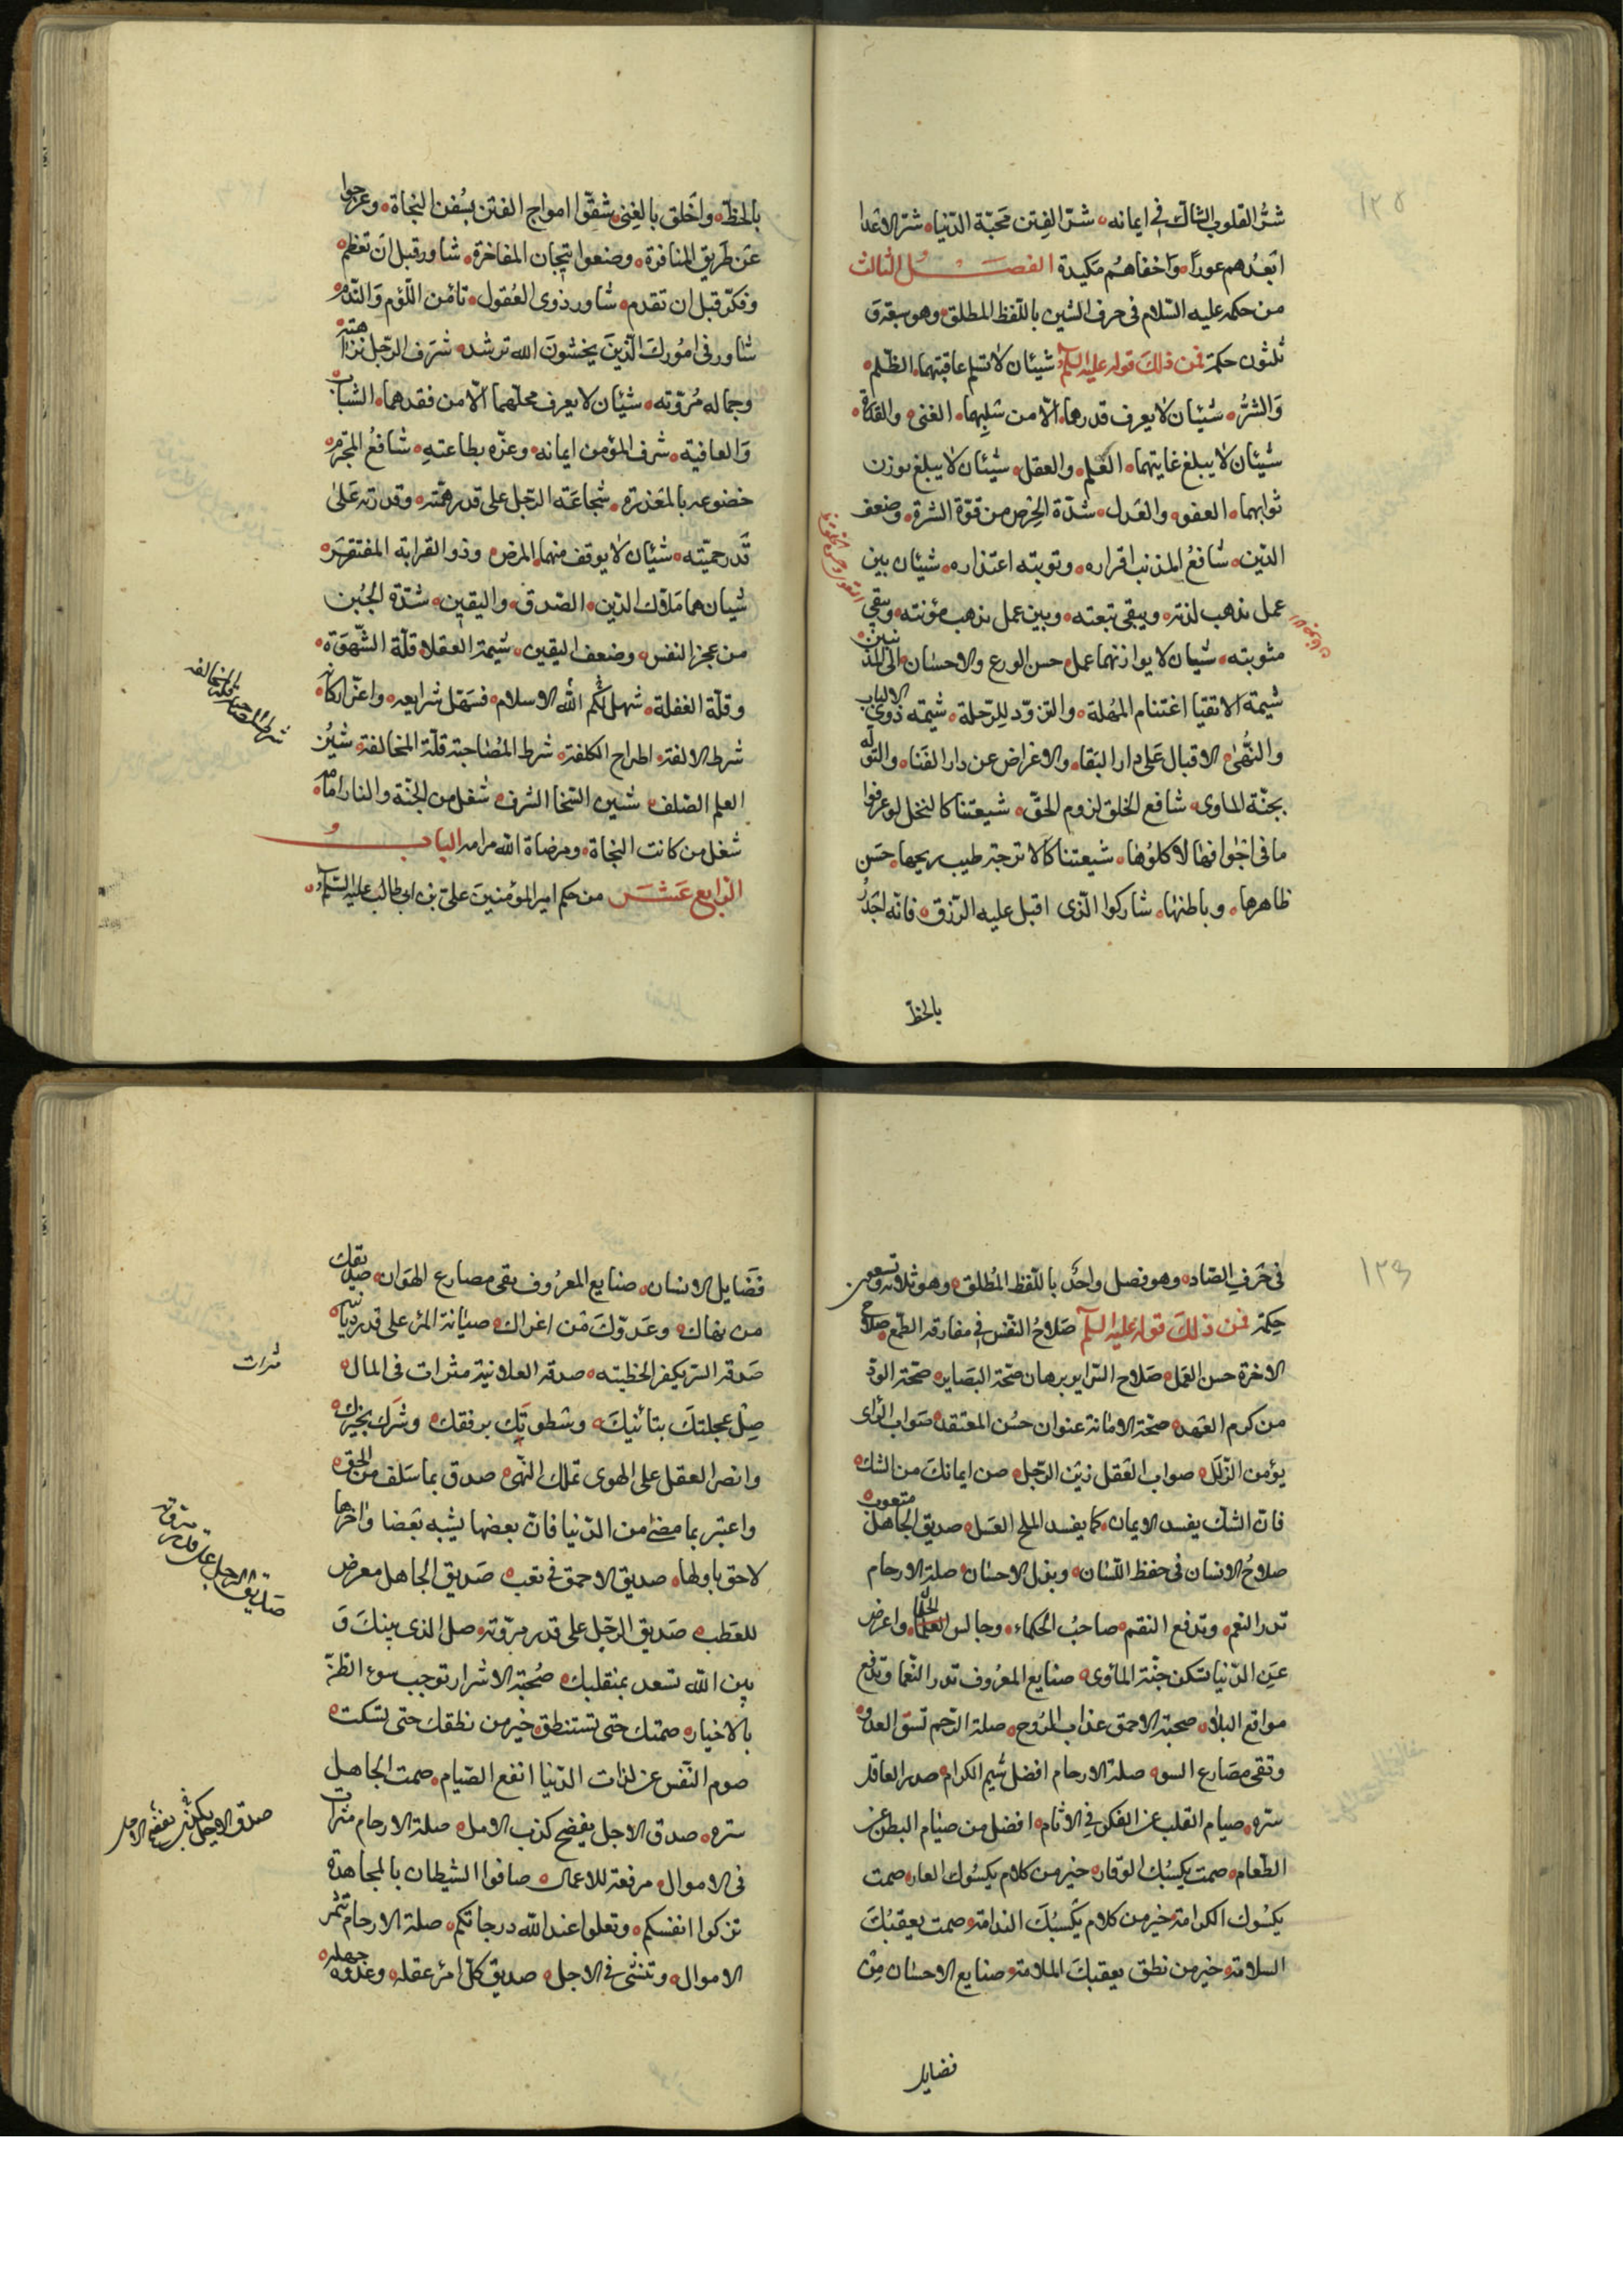 ١٢٥
شرُّ القلوب الشاكّ في ايمانه شرّ الفِتن مَحَبّة الدّنيا شرّ الاعْدا
ابَعدُهم عوراً وَاخفاهُم مَكيدة الفصَــل الثالث
من حكمه عليه السّلام في حرف الشين باللّفظ المطلق وهو سبعة وَ
ثلثون حكمة فمن ذلكَ قوله عليه السّلام شيئان لا تسلم عاقبتهما الظّلم
وَالشرُّ شيئان لا يعرف قدرهما الّا من سُلِبهما الغنى والقدرة
شيئان لا يبلغ غايتهما العْلم والعقل شيئان لا يبلغ بوزن
ثوابهما العفو والعَدل شدّة الحِرص من قوّة الشره وضعف
الدّين شافعُ المذنب اقراره وتوبته اعتذاره شيئان بين
عمل تذهب لذته ويبقى تبعته وبين عمل تذهب مؤنته ويبقي
مثوبته شيئان لا يوازنهما عمل حسن الورع والاحسان الى المذنبين
شيمة الاتقيا اغتنام المُهلة والتزوّد للِرّحلة شيمة ذوي الالباب
والنُّهىٰ الاقبال عَلى دار البَقا والاعْراض عن دار الفَنا والتولّه
بجنّة الماوى شافع الخلق لزوم الحقّ شيعتنا كالنحل لو عرفوا
ما في اجْوافها لاكلوُها شيعتنا كالاترجة طيب ريحها حسَن
ظاهرها وباطنها شاركوا الّذى اقبل عليه الرّزق فانّه اجَدرُ
بالحظّ
بالحَظّ واَخلق بالغِنى شقّوا امواج الفتن بسُفن النجاة وعرجوا
عَن طَريق المنافرة وضعوا تيجان المفاخرة شاور قبل اَن تعَظم
وفكّر قبل ان تقدم شاور ذوى العُقول تامَن اللّؤم وَالنّدم
شاور في امُورِكَ الّذينَ يخشونَ الله ترشد شرَف الرّجل نزاهته
وجماله مُرؤته شيئان لا يعرف محلّهما الّا من فقدهما الشباب
وَالعافية شرف المؤمن ايمانه وعزّه بطاعتهِ شافعُ المجَرم
خضوعه بالمعَذرة شجاعَة الرّجل على قدر همّته وقدرته عَلىٰ
قَدر حميّته شيئان لا يوقف منهما المرض وذو القرابة المفتقر
شيئان هما ملاك الدّين الصّدق واليقين شدّة الجُبن
من عجز النفس وضعف اليقين شيمة العقلا قلّة الشّهوَة
وقلّة الغفلة شهل لكُم الله الاسلام فسَهّل شرايعه واعزّ اركانه
شرط الالفة اطراح الكلفة شرط المُصَاحبة قلّة المخالفة شينُ
العلم الصّلف شين السّخا السّرف شغل من الجنّة والنار امامه
شغل من كانت النجاة ومرضاة الله مرامه البابُ
الرابع عَشَــر من حكم امير المؤمنينَ علىّ بن ابي طالب عليه السّلام
شرط المصاحبة قلة المخالفة
١٢٦
في حَرفِ الصّاد وهو فصل واحد باللّفظ المُطلق وهو ثلاثة وتسعون
حِكمة فمن ذلكَ قوله عليه السّلام صَلاحُ النّفْس في مفارقه الطّمع صلاح
الاخرة حسن العَمل صَلاح السّراير برهان صّحة البصَاير صحّة الودّ
من كرم العَهد صحّة الامانة عنوان حسُن المعتقد صوَاب الرّاى
يؤمن الزّلَل صواب العَقل زين الرّجل صن ايمانكَ من الشك
فانّ الشكّ يفسد الايمان كما يفسد الملح العسَل صديق الجاهل متعوب
صلاحُ الانسان في حفظ اللّسان وبذل الاحسان صلة الارحام
تدر النعم وتدفع النقم صاحبُ الحكماء وجالس العلماء واعرض
عَن الدّنيا تسكن جنّة الماوى صنايع المعرُوف تدر النّعما وتدفع
مواقع البلا صحبة الاحمق عذاب الرّوح صلة الرّحم تسؤ العدو
وتقى مصَارع السوء صلة الارحام افضل شيم الكرام صدر العاقل
سرّه صيام القلب عن الفكر في الاثام افضل من صيَام البطن عن
الطّعام صمت يكسبُك الوقار خير من كلام يكسُوك العار صمت
يكسُوك الكرامة خير من كلام يكَسبُكَ الندامة صمت يعقبُكَ
السلامة خير من نطق يعقبكَ الملامة صنايع الاحسان مِنْ
فضايل
فضَايل الانسان صنايع المعرُوف تقى مصارع الهَوان صديقك
من نهاك وعَدوّكَ من اغراك صيَانة المرء على قدر ديانته
صَدقة السّر يكفر الخطيئه صدقة العلانية مثرات في المال
صِل عجلتكَ بتانّيكَ وسَطوتَك برفقك وشَرك بخيرك
وانصر العقل على الهوى تملك النّهى صدق بما سَلف من الحق
واعتبر بما مضىٰ من الدّنيا فانّ بعضها يشبه بَعضا واخرها
لاحق باولها صديق الاحمق في تعب صَديق الجاهل معرض
للعَطب صَديق الرّجل على قدر مروّته صل الذى بينكَ وَ
بين الله تسعد بمنقلبك صُحبة الاشرار توجب سوء الظنّ
بالاخيار صمتك حتى تستنطق خير من نطقك حتى تسكت
صوم النّفس عن لذات الدّنيا انفع الصّيام صمت الجاهل
ستره صدق الاجل يفضح كذب الامل صلة الارحام مثرات
في الاموال مرفعة للاعمال صافوا الشيطان بالمجاهدة
تزكوا انفسكم وتعلوا عند الله درجاتكم صلة الارحام تثمر
الاموال وتنشئ في الاجل صديق كلّ امرء عقله وعدوّه جهله
ثمرات
صديق الرجل على قدر مروته